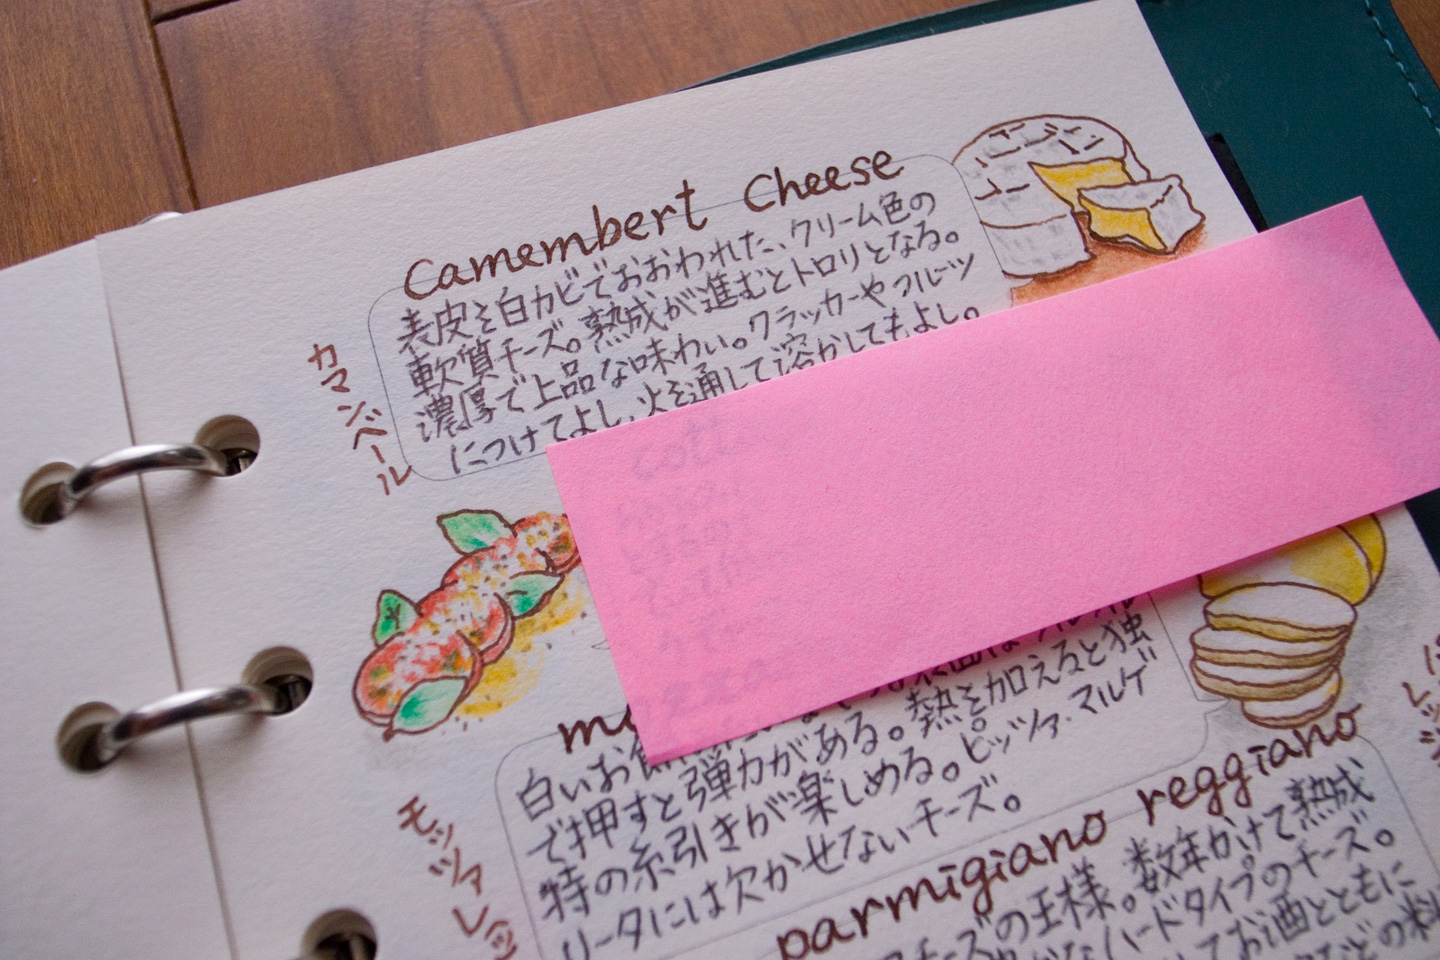 Camembert Cheese
カマンベール
表皮を白カビでおおわれた、クリーム色の
軟質チーズ。熟成が進むとトロリとなる。
濃厚で上品な味わい。クラッカーやフルーツ
につけてよし、火を通して溶かしてもよし。
モッツァレッ
白いお
で押すと弾力がある。熱を加えると独
特の糸引きが楽しめる。ピッツァ・マルゲ
リータには欠かせないチーズ。
parmigiano reggiano
チーズの王様。数年かけて熟成
ハードタイプのチーズ。
てお酒とともに